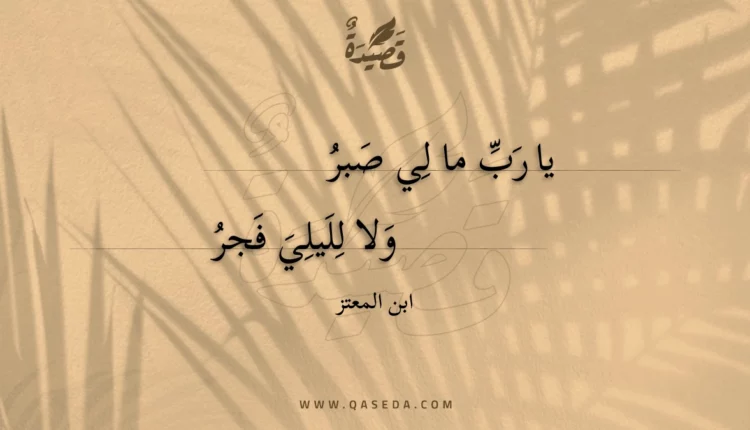 قَصِيْدَةٌ
يا رَبِّ ما لِي صَبرُ
وَلا لِلَيلِيَ فَجرُ
ابن المعتز
WWW.QASEDA.COM